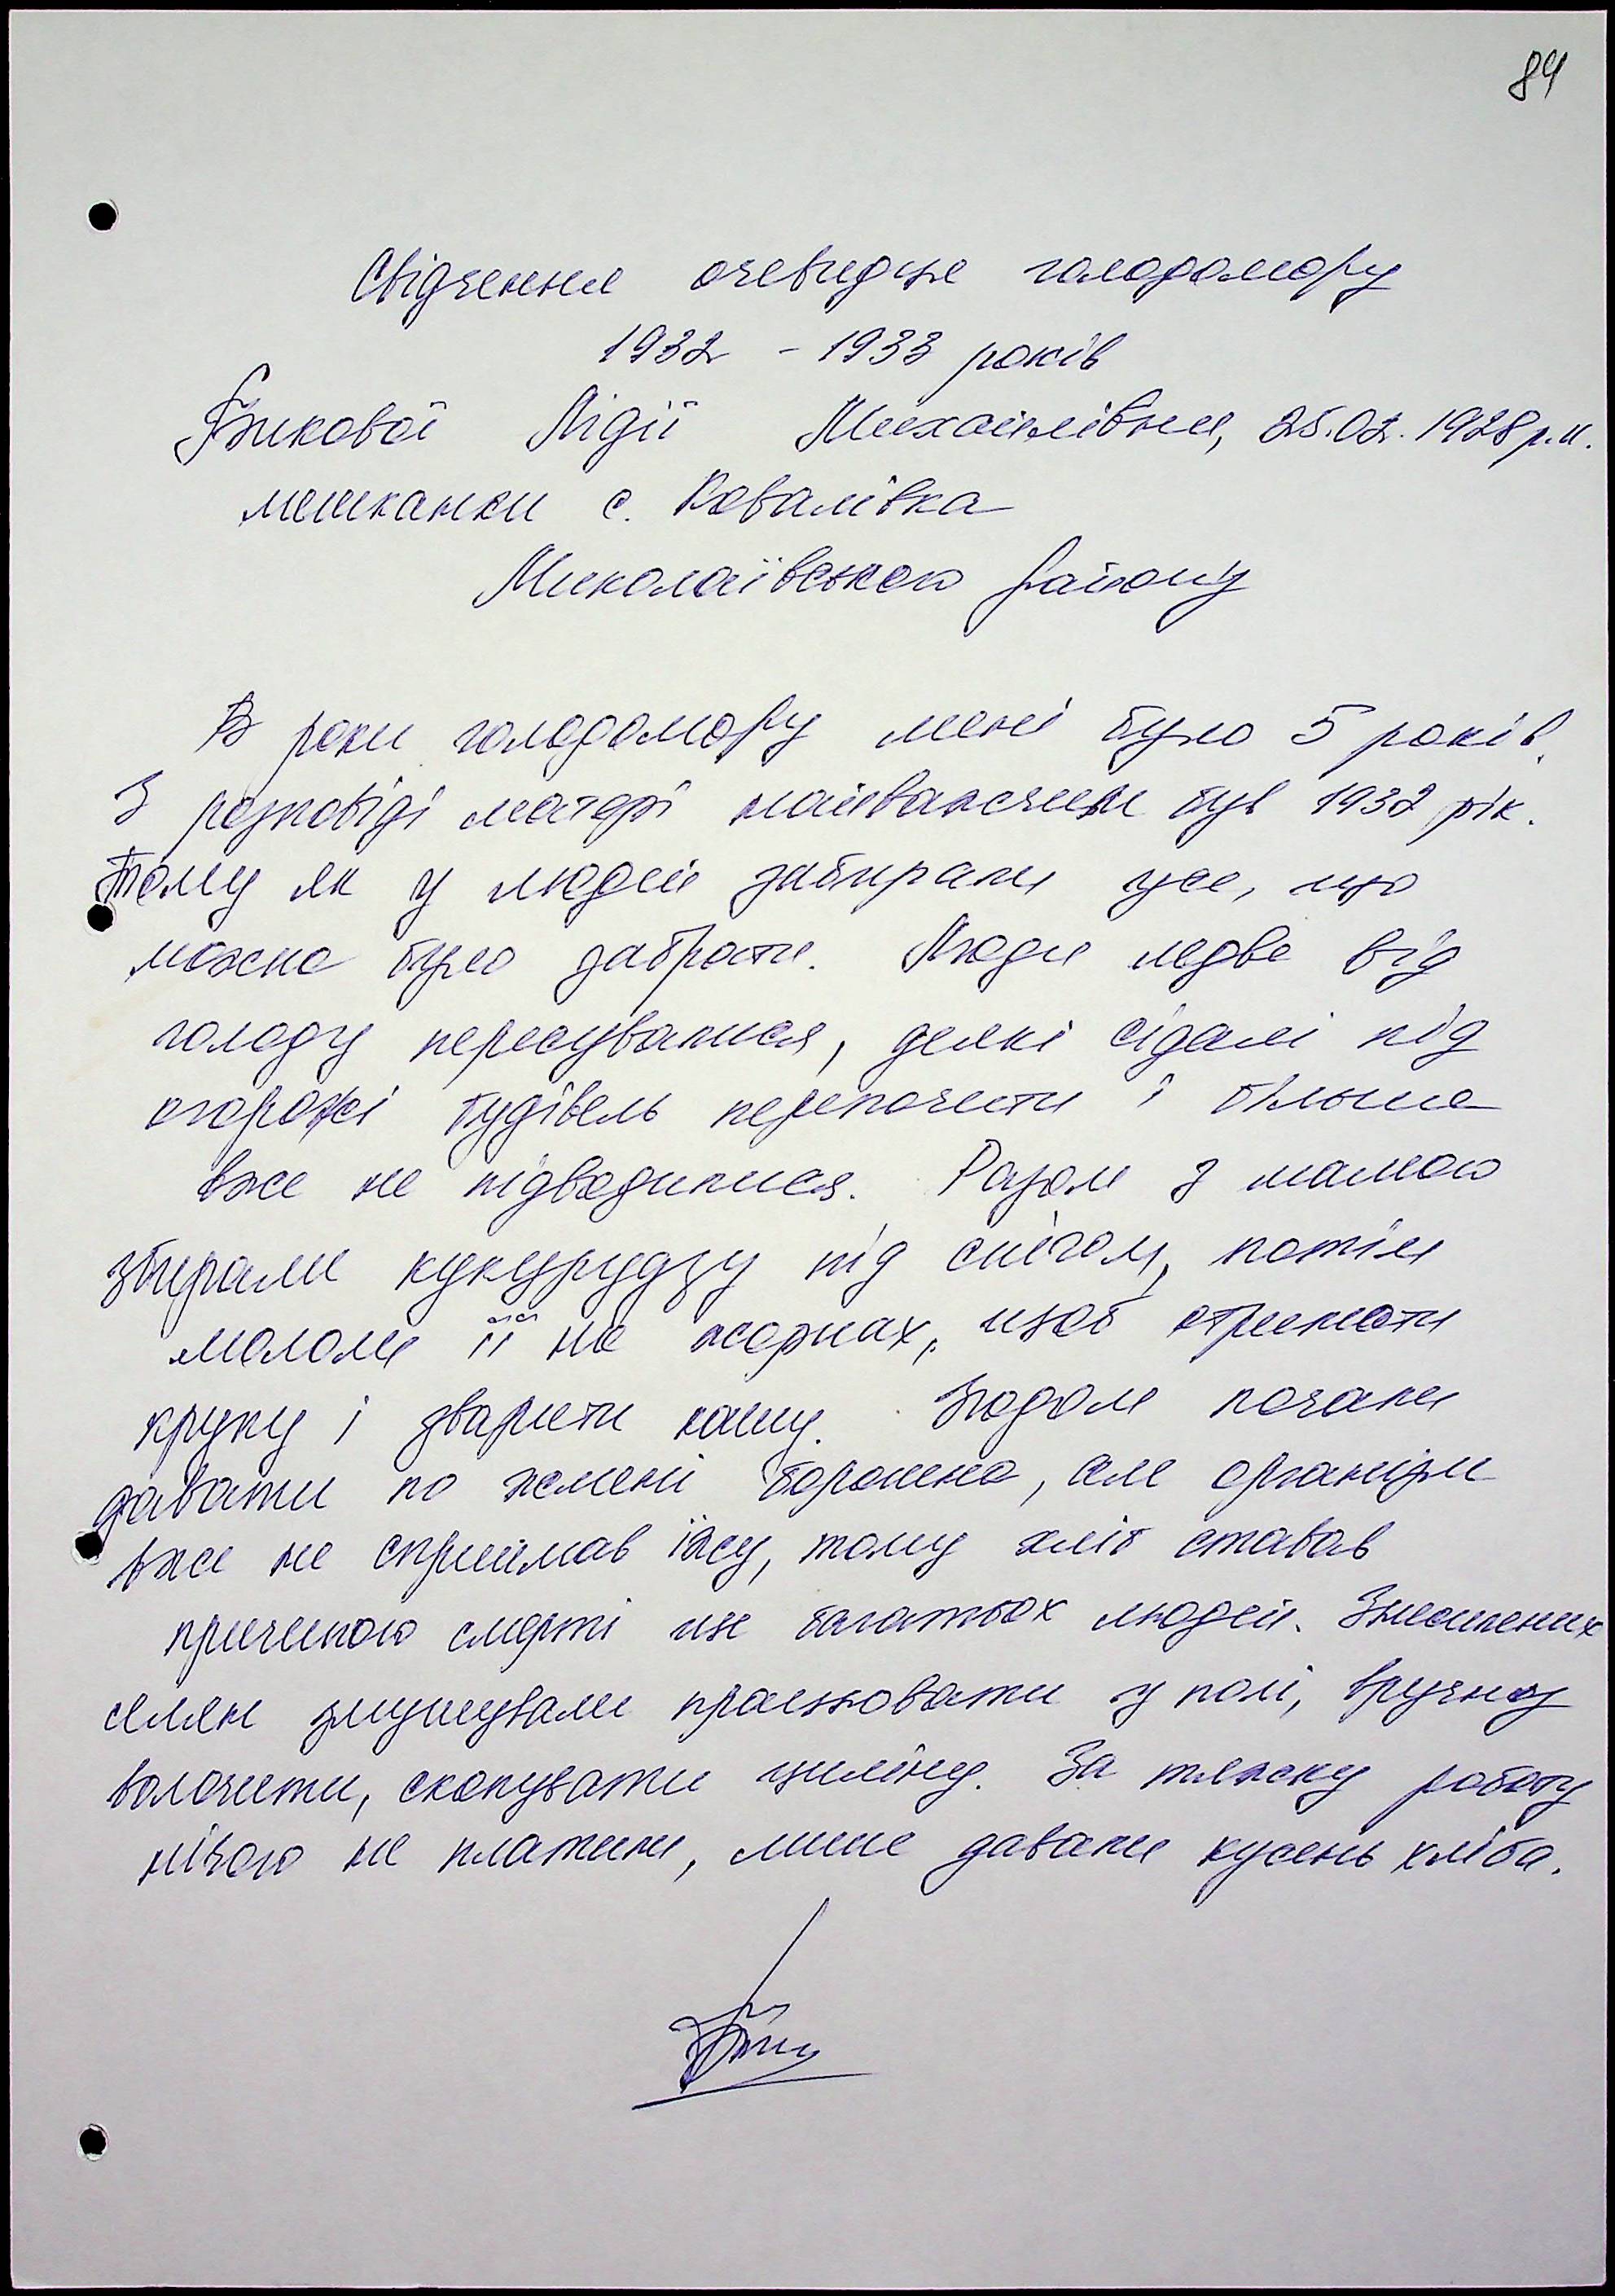 84
Свідчення очевидця голодомору
1932 - 1933 років
Бикової Лідії Михайлівни, 25.02.1928 р.н.
мешканки с. Ковалівка
Миколаївського району
В роки голодомору мені було 5 років.
З розповіді матері найважчим був 1932 рік.
Тому як у людей забирали усе, що
можна було забрати. Люди ледве від
голоду пересувалися, деякі сідалі під
огорожі будівель перепочити і більше
вже не підводилися. Разом з мамою
збирали кукурудзу під снігом, потім
мололи її на жорнах, щоб отримати
крупу і зварити кашу. Згодом почали
давати по жмені борошна, але організм
вже не сприймав їжу, тому хліб ставав
причиною смерті ще багатьох людей. Знесилених
селян змушували працювати у полі, вручну
волочити, скопувати цилину. За тяжку роботу
нічого не платили, лише давали кусень хліба.